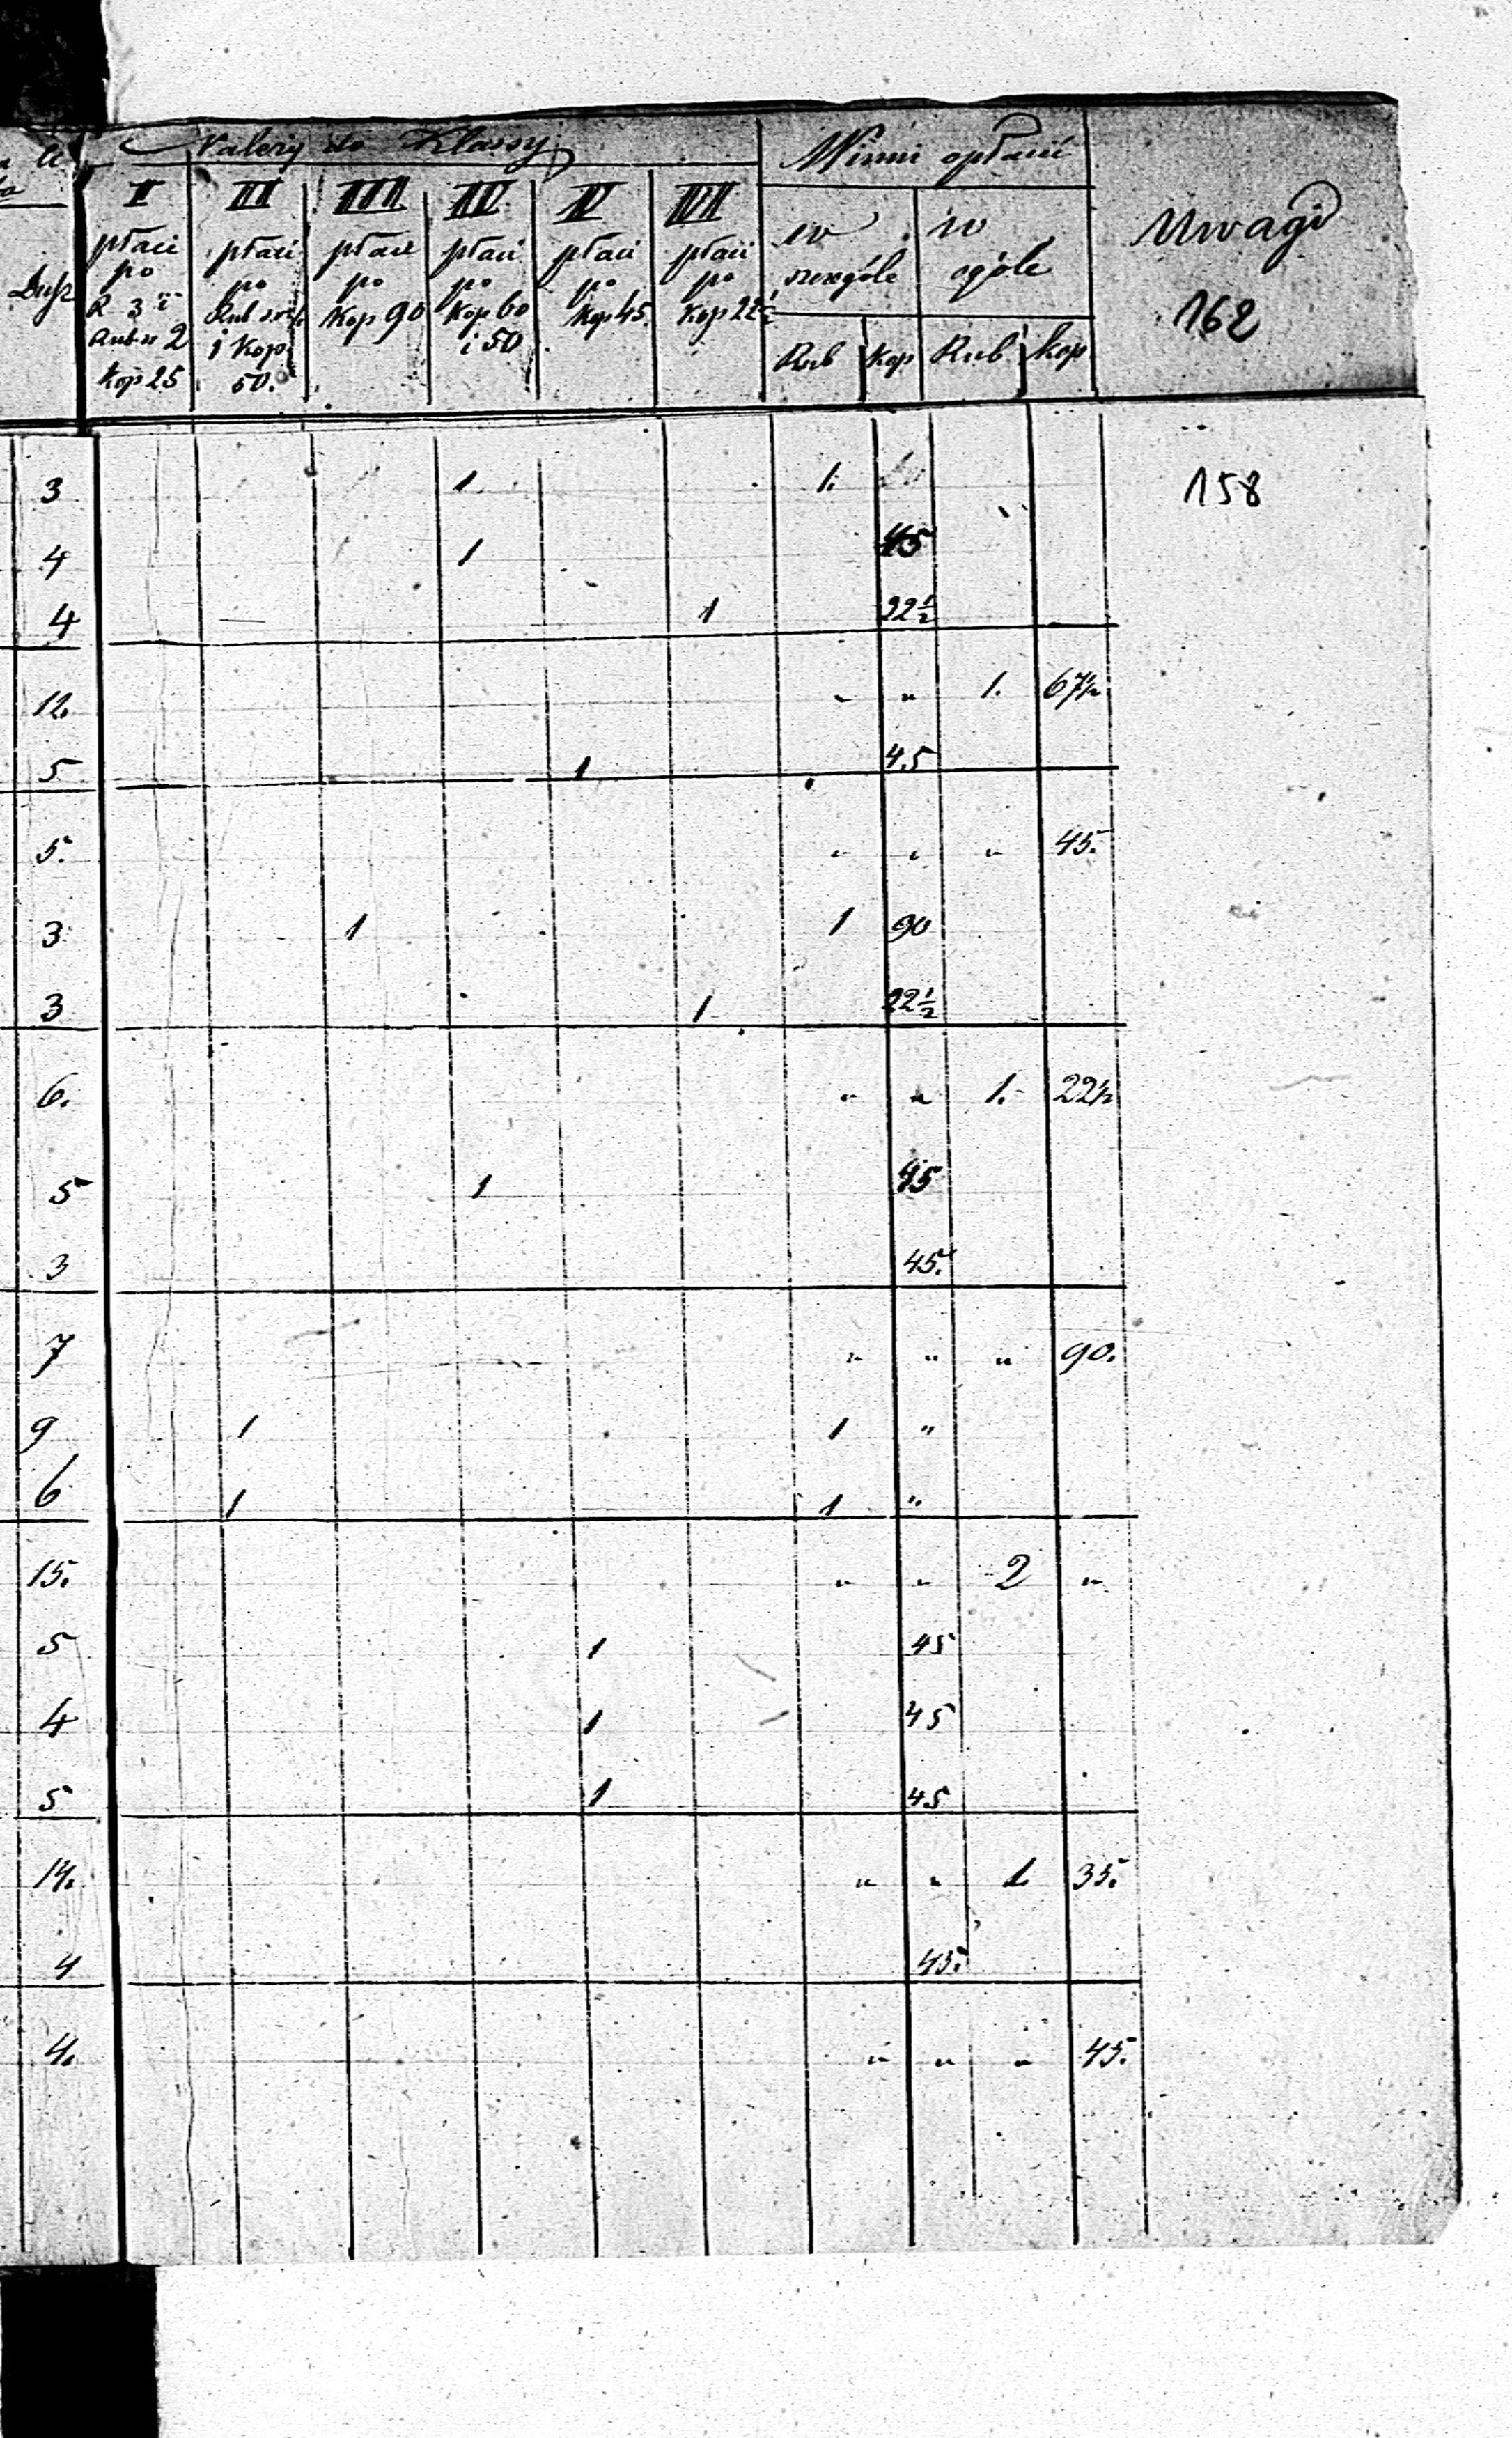 Należy do Klassy
Winni opłacić
Uwagi
162
Dusz
I płaci po R 3 i Rubs 2 kop 25
II płaci po Rub 1 kop 50.
III płaci po kop 90
IV płaci po kop 60 i 50
V płaci po kop 45.
VI płaci po kop 22½
w szczególe
w ogóle
Rub kop Rub kop
3 1 1. 158
4 1 45
4 1 22½
12. " " 1. 67½
5 1 45
5. " " " 45.
3 1 1 90
3 1 22½
6. " " 1. 22½
5 1 45
3 45.
7 " " " 90.
9 1 1 "
6 1 1 "
15. " " 2 "
5 1 45
4 1 45
5 1 45
14. " " 1. 35.
4 45.
4. " " " 45.